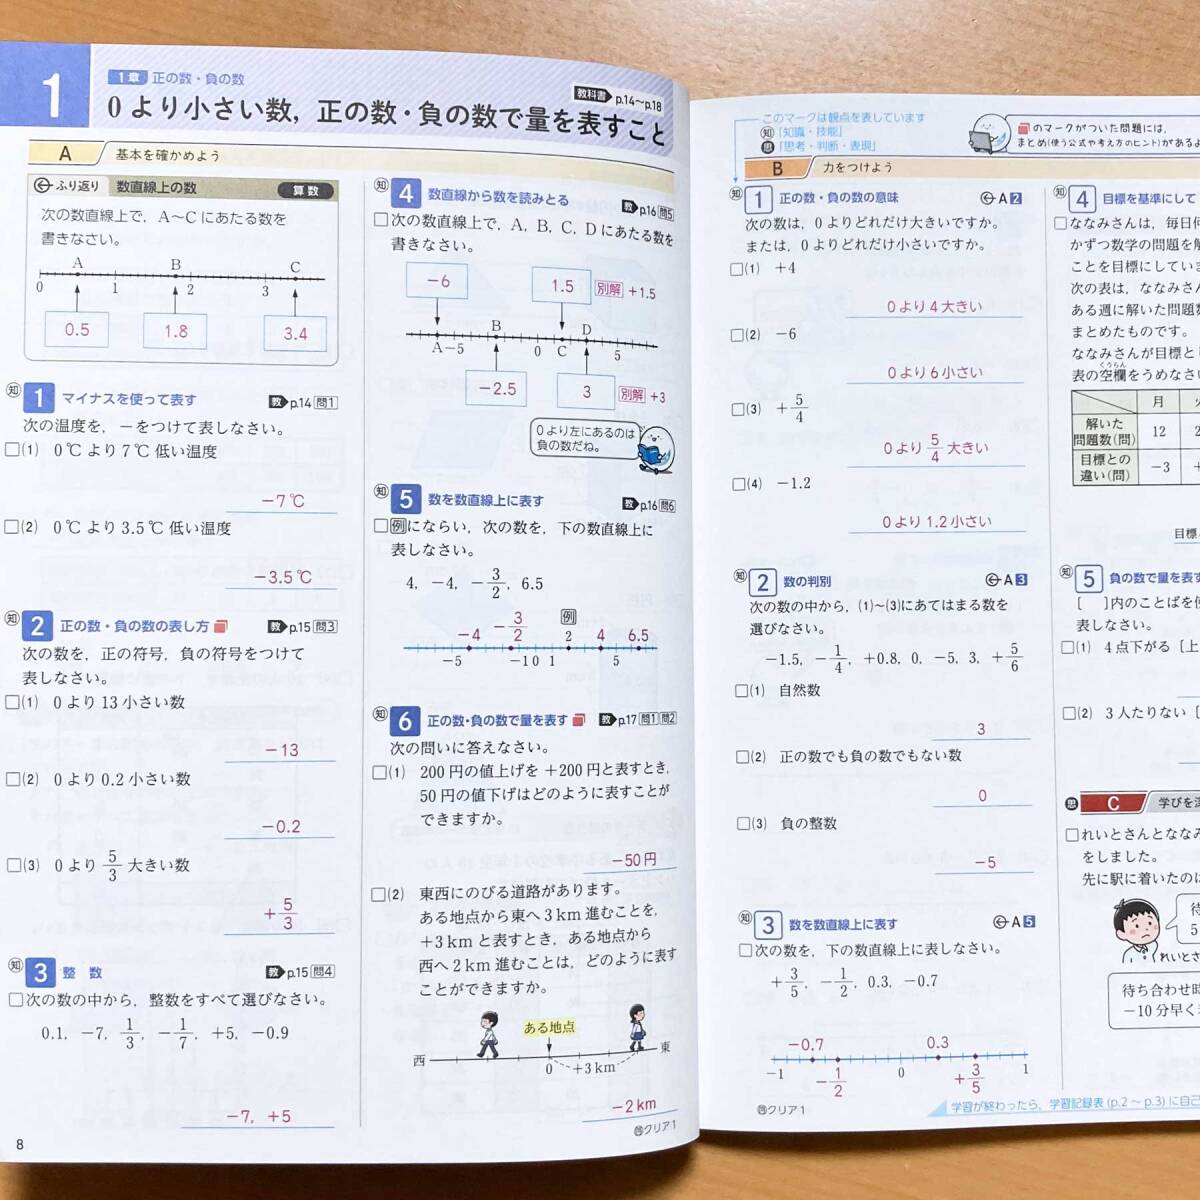 1
1章 正の数・負の数
0より小さい数，正の数・負の数で量を表すこと
教科書 p.14～p.18
A 基本を確かめよう
ふり返り 数直線上の数 算数
次の数直線上で，A～Cにあたる数を
書きなさい。
A B C
0 1 2 3
0.5 1.8 3.4
知 1 マイナスを使って表す 教 p.14 問1
次の温度を，－をつけて表しなさい。
(1) 0℃より7℃低い温度
－7℃
(2) 0℃より3.5℃低い温度
－3.5℃
知 2 正の数・負の数の表し方 教 p.15 問3
次の数を，正の符号，負の符号をつけて
表しなさい。
(1) 0より13小さい数
－13
(2) 0より0.2小さい数
－0.2
(3) 0より5/3大きい数
＋5/3
知 3 整数 教 p.15 問4
次の数の中から，整数をすべて選びなさい。
0.1，－7，1/3，－1/7，＋5，－0.9
－7，＋5
8
知 4 数直線から数を読みとる 教 p.16 問5
次の数直線上で，A，B，C，Dにあたる数を
書きなさい。
－6 1.5 別解 ＋1.5
B D
A －5 0 C 5
－2.5 3 別解 ＋3
0より左にあるのは
負の数だね。
知 5 数を数直線上に表す 教 p.16 問6
例にならい，次の数を，下の数直線上に
表しなさい。
4，－4，－3/2，6.5
－4 －3/2 例 2 4 6.5
－5 －1 0 1 5
知 6 正の数・負の数で量を表す 教 p.17 問1 問2
次の問いに答えなさい。
(1) 200円の値上げを＋200円と表すとき，
50円の値下げはどのように表すことが
できますか。
－50円
(2) 東西にのびる道路があります。
ある地点から東へ3km進むことを，
＋3kmと表すとき，ある地点から
西へ2km進むことは，どのように表す
ことができますか。
ある地点
西 東
0 ＋3km
－2km
クリア1
このマークは観点を表しています
知「知識・技能」
思「思考・判断・表現」
のマークがついた問題には，
まとめ(使う公式や考え方のヒント)がある
B 力をつけよう
知 1 正の数・負の数の意味 A2
次の数は，0よりどれだけ大きいですか。
または，0よりどれだけ小さいですか。
(1) ＋4
0より4大きい
(2) －6
0より6小さい
(3) ＋5/4
0より5/4大きい
(4) －1.2
0より1.2小さい
知 2 数の判別 A3
次の数の中から，(1)～(3)にあてはまる数を
選びなさい。
－1.5，－1/4，＋0.8，0，－5，3，＋5/6
(1) 自然数
3
(2) 正の数でも負の数でもない数
0
(3) 負の整数
－5
知 3 数を数直線上に表す A5
次の数を，下の数直線上に表しなさい。
＋3/5，－1/2，0.3，－0.7
－0.7 0.3
－1 －1/2 0 ＋3/5 1
クリア1
学習が終わったら，学習記録表(p.2～p.3)に自己
知 4 目標を基準にして
ななみさんは，毎日何
かずつ数学の問題を解
ことを目標にしていま
次の表は，ななみさん
ある週に解いた問題数
まとめたものです。
ななみさんが目標と
くうらん
表の空欄をうめなさい
月
解いた 12 2
問題数(問)
目標との －3 ＋
違い(問)
目標
知 5 負の数で量を表す
[ ]内のことばを使
表しなさい。
(1) 4点下がる［上
(2) 3人たりない［
思 C 学びを
れいとさんとななみ
をしました。
先に駅に着いたのは
待
5
れいとさ
待ち合わせ時
－10分早く